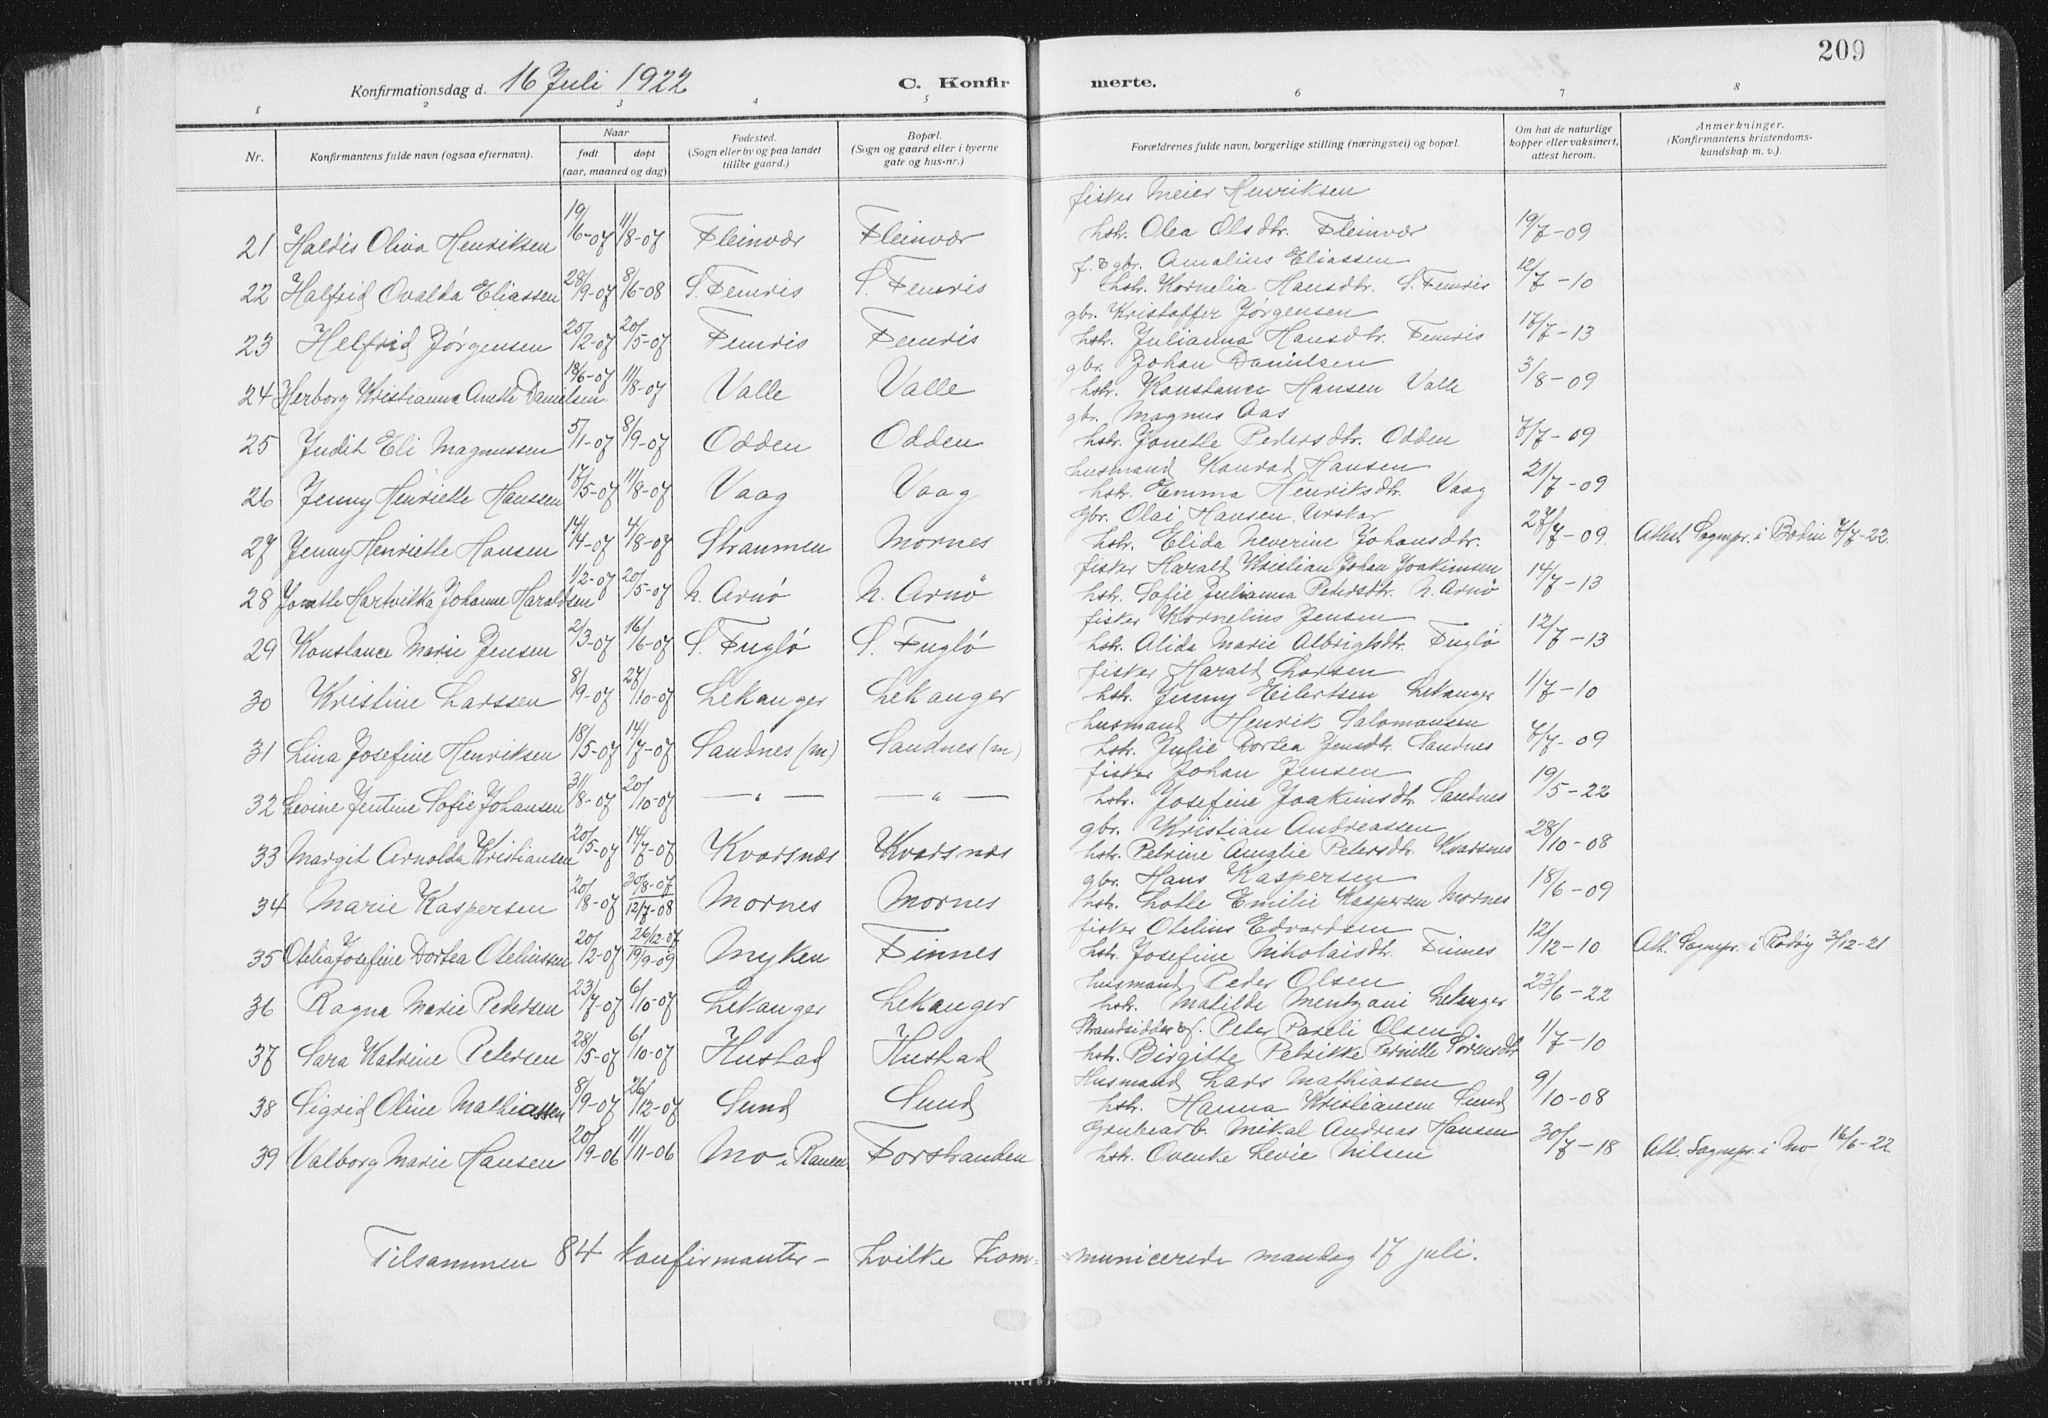 209
Konfirmationsdag d. 16 Juli 1922 C. Konfirmerte.
1 2 3 4 5 6 7 8
Nr. Konfirmantens fulde navn (ogsaa efternavn). Naar født døpt (aar, maaned og dag) Fødested. (Sogn eller by og paa landet tillike gaard.) Bopæl. (Sogn og gaard eller i byerne gate og hus-nr.) Forældrenes fulde navn, borgerlige stilling (næringsvei) og bopæl. Om hat de naturlige kopper eller vaksinert, attest herom. Anmerkninger. (Konfirmantens kristendomskundskap m. v.).
fisker Meier Henriksen
21 Haldis Oliva Henriksen 19/6-07 11/8-07 Fleinvær Fleinvær hstr. Olea Olsdtr. Fleinvær 19/7-09
f. & gbr. Amalius Eliassen
22 Halfrid Ovalda Eliassen 28/9-07 8/6-08 S. Femris S. Femris hstr. Kornelia Hansdtr. S. Femris 12/7-10
gbr. Kristoffer Jørgensen
23 Helfrid Jørgensen 25/2-07 20/5-07 Femris Femris hstr. Julianna Hansdtr. Femris 17/7-13
gbr. Johan Danielsen
24 Herborg Kristianna Anette Danielsen 18/6-07 11/8-07 Valle Valle hstr. Konstance Hansen Valle 3/8-09
gbr. Magnus Aas
25 Judit Eli Magnussen 5/1-07 8/9-07 Odden Odden hstr. Jonette Pedersdtr. Odden 7/7-09
husmand Konrad Hansen
26 Jenny Henriette Hanssen 17/5-07 11/8-07 Vaag Vaag hstr. Emma Henriksdtr. Vaag 21/7-09
gbr. Olai Hansen,
27 Jenny Henriette Hansen 14/4-07 4/8-07 Straumen Mornes hstr. Elida Neverine Johansdtr. 27/7-09 Attest Sognepr. i Bodin 7/7-22
fisker Harald Kristian Johan Joakimsen
28 Jonette Hartvikka Johanne Haraldsen 1/2-07 20/5-07 N. Arnø N. Arnø hstr. Sofie Julianna Petersdtr. N. Arnø 14/7-13
fisker Kornelius Jensen
29 Konstance Marie Jensen 2/3-07 16/6-07 S. Fuglø S. Fuglø hstr. Alida Marie Albrigtsdtr. Fuglø 12/7-13
fisker Harald Larsen
30 Kristine Larssen 8/9-07 27/10-07 Lekanger Lekanger hstr. Jenny Eilertsen Lekanger 1/7-10
husmand Henrik Salomonsen
31 Lina Josefine Henriksen 18/5-07 14/7-07 Sandnes (m) Sandnes (m) hstr. Julie Dortea Jensdtr. Sandnes 7/7-09
fisker Johan Jensen
32 Levine Jentine Sofie Johansen 31/8-07 20/10-07 — „ — — „ — hstr. Josefine Joakimsdtr. Sandnes 19/5-22
gbr. Kristian Andreassen
33 Margit Arnolda Kristiansen 20/5-07 14/7-07 Kvarsnæs Kvarsnæs hstr. Petrine Amalie Petersdtr. Kvarsnes 28/10-08
gbr. Hans Kaspersen
34 Marie Kaspersen 20/8-07 30/8-07 12/7-08 Mornes Mornes hstr. Lotte Emilie Kaspersen Mornes 18/6-09
fisker Otelius Edvardsen
35 Otelia Josefine Dortea Oteliussen 20/12-07 26/12-07 19/9-09 Myken Finnes hstr. Josefine Nikolaisdtr. Finnes 12/12-10 Att. Sognepr. i Rødøy 3/12-21
husmand Peder Olsen
36 Ragna Marie Pedersen 23/7-07 6/10-07 Lekanger Lekanger hstr. Matilde Mentzoni Lekanger 23/6-22
Strandsidder & f. Peter Pareli Olsen
37 Sara Katrine Petersen 28/5-07 6/10-07 Hustad Hustad hstr. Birgitte Petrikke Pernille Sørensdtr 1/7-10
Husmand Lars Mathiassen
38 Sigrid Oline Mathiassen 8/9-07 26/12-07 Sund Sund hstr. Hanna Kristiansen Sund 9/10-08
Grubearb. Mikal Andreas Hansen
39 Valborg Marie Hansen 20/9-06 11/11-06 Mo i Ranen Forstranden hstr. Ovenke Levie Nilsen 30/7-18 Att. Sognepr. i Mo 16/6-22
Tilsammen 84 konfirmanter – hvilke kommunicerede mandag 17 juli.